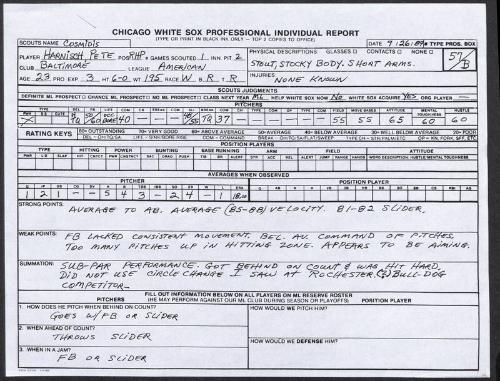 CHICAGO WHITE SOX PROFESSIONAL INDIVIDUAL REPORT
(TYPE OR PRINT IN BLACK INK ONLY - TOP 2 COPIES TO OFFICE)
SCOUTS NAME COSMIDIS DATE 9-26-89 TYPE PROS. BOX 57/B
PLAYER HARNISCH, PETE RHP # GAMES SCOUTED 1 INN. PIT 2
PHYSICAL DESCRIPTIONS: GLASSES CONTACTS NONE
CLUB BALTIMORE LEAGUE AMERICAN
STOUT, STOCKY BODY. SHORT ARMS.
AGE 23 PRO EXP. 3 HT 6-0 WT 195 RACE W B R T R
INJURIES: NONE KNOWN
SCOUTS JUDGMENTS
DEFINITE ML PROSPECT CHANCE ML PROSPECT NO PROSPECT CLASS NEXT YEAR ML HELP WHITE SOX NOW NO WHITE SOX ACQUIRE YES ORG PLAYER
PITCHERS
40 TR 37 55 55 65 60 60
RATING KEYS 80=OUTSTANDING 70=VERY GOOD 60=ABOVE AVERAGE 50=AVERAGE 40=BELOW AVERAGE 30=WELL BELOW AVERAGE 20=POOR
POSITION PLAYERS
TYPE HITTING POWER BUNTING RUNNING FIELDING
AVERAGES WHEN OBSERVED
PITCHER POSITION PLAYER
1 2 1 - 5 4 3 - 2 4 - 1 18.00
STRONG POINTS:
AVERAGE TO AB. AVERAGE (85-88) VELOCITY. 81-82 SLIDER.
WEAK POINTS: FB LACKED CONSISTENT MOVEMENT. BEL. AV. COMMAND OF PITCHES.
TOO MANY PITCHES UP IN HITTING ZONE. APPEARS TO BE AIMING.
SUMMATION: SUB-PAR PERFORMANCE. GOT BEHIND ON COUNT & WAS HIT HARD.
DID NOT USE CIRCLE CHANGE I SAW AT ROCHESTER. BULL-DOG
COMPETITOR.
FILL OUT INFORMATION BELOW ON ALL PLAYERS ON ML RESERVE ROSTER
PITCHERS (HE MAY PERFORM AGAINST OUR ML CLUB DURING SEASON OR PLAYOFFS) POSITION PLAYER
1. HOW DOES HE PITCH WHEN BEHIND ON COUNT?
GOES W/ FB OR SLIDER
HOW WOULD WE PITCH HIM?
2. WHEN AHEAD OF COUNT?
THROWS SLIDER
3. WHEN IN A JAM?
FB OR SLIDER
HOW WOULD WE DEFENSE HIM?